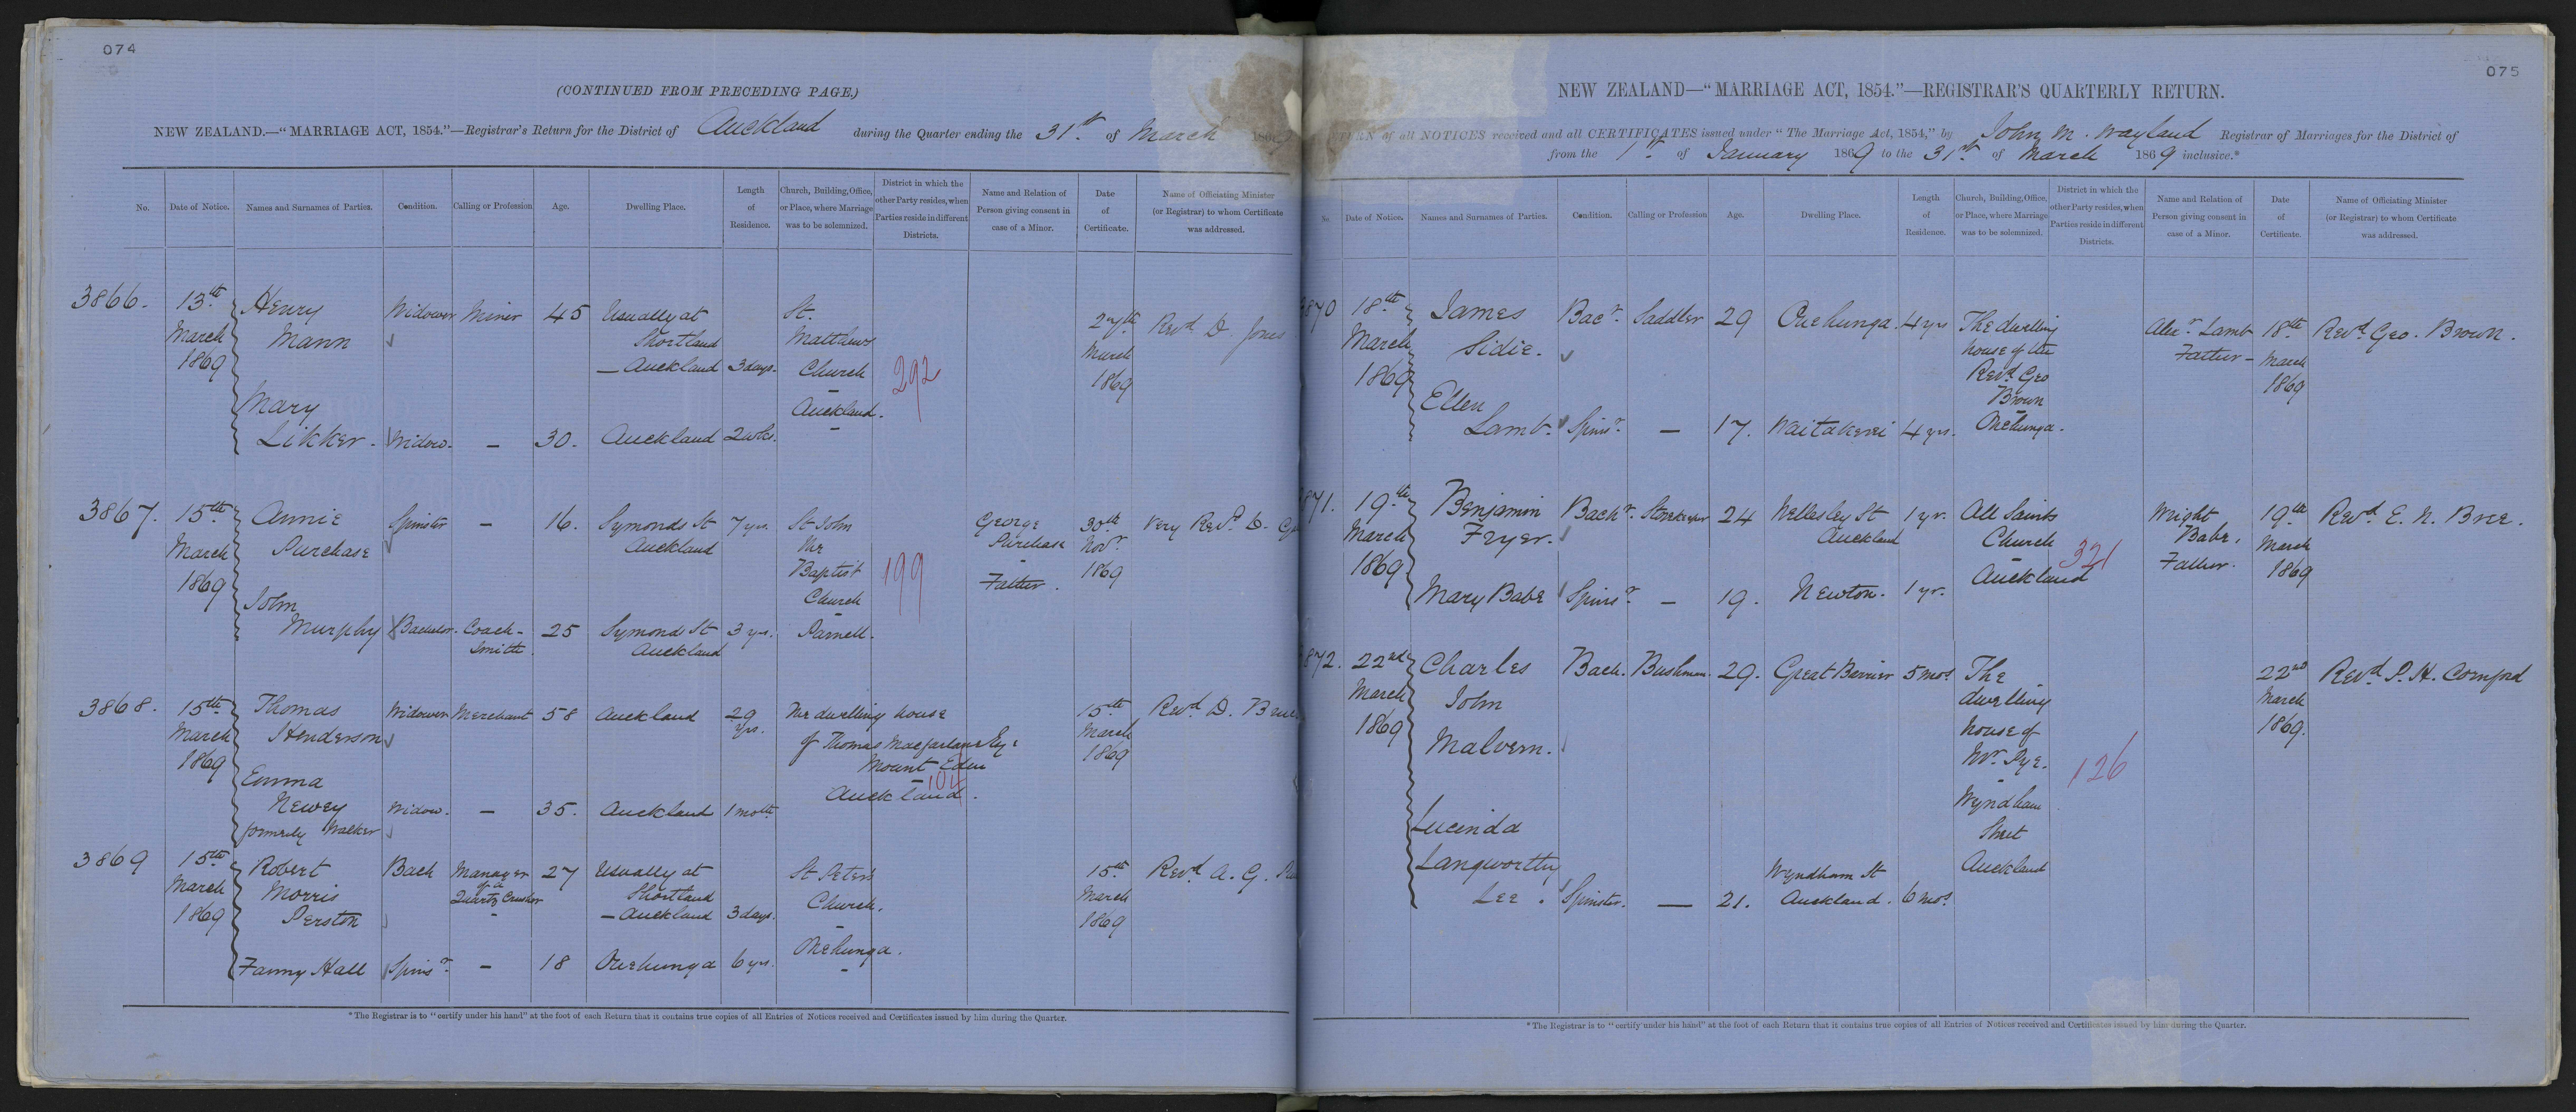 074
(CONTINUED FROM PRECEDING PAGE.)
NEW ZEALAND.—"MARRIAGE ACT, 1854."—Registrar's Return for the District of Auckland during the Quarter ending the 31st of March 186
No.
Date of Notice.
Names and Surnames of Parties.
Condition.
Calling or Profession
Age.
Dwelling Place.
Length
of
Residence.
Church, Building, Office,
or Place, where Marriage
was to be solemnized.
District in which the
other Party resides, when
Parties reside in different
Districts.
Name and Relation of
Person giving consent in
case of a Minor.
Date
of
Certificate.
Name of Officiating Minister
(or Registrar) to whom Certificate
was addressed.
3866.
13th
March
1869
Henry
Mann
Widower
Miner
45
Usually at
Shortland
— Auckland
3 days.
St.
Matthews
Church
—
Auckland.
292
27th
March
1869
Revd D. Jones
Mary
Likker.
Widow.
—
30.
Auckland
2 wks.
3867.
15th
March
1869
Annie
Purchase
Spinster
—
16.
Symonds St
Auckland
7 yrs.
St John
the
Baptist
Church
—
Parnell.
199
George
Purchase
—
Father.
30th
Novr.
1869
Very Revd
John
Murphy
Bachelor.
Coach-
Smith
25
Symonds St
Auckland
3 yrs.
3868.
15th
March
1869
Thomas
Henderson
Widower
Merchant
58
Auckland
29
yrs.
The dwelling house
of Thomas Macfarlane Esqr
Mount Eden
—
Auckland.
104
15th
March
1869
Revd D. Bruce
Emma
Newey
formerly Walker
Widow.
—
35.
Auckland
1 month
3869
15th
March
1869
Robert
Morris
Perston
Bach
Manager
of a
Quartz Crusher
27
Usually at
Shortland
— Auckland
3 days.
St Peters
Church.
—
Onehunga.
15th
March
1869
Revd A. G.
Fanny Hall
Spinsr.
—
18
Onehunga
6 yrs.
*The Registrar is to "certify under his hand" at the foot of each Return that it contains true copies of all Entries of Notices received and Certificates issued by him during the Quarter.
075
NEW ZEALAND—"MARRIAGE ACT, 1854."—REGISTRAR'S QUARTERLY RETURN.
of all NOTICES received and all CERTIFICATES issued under "The Marriage Act, 1854," by John M. Wayland Registrar of Marriages for the District of
from the 1st of January 1869 to the 31st of March 1869 inclusive.*
No.
Date of Notice.
Names and Surnames of Parties.
Condition.
Calling or Profession
Age.
Dwelling Place.
Length
of
Residence.
Church, Building, Office,
or Place, where Marriage
was to be solemnized.
District in which the
other Party resides, when
Parties reside in different
Districts.
Name and Relation of
Person giving consent in
case of a Minor.
Date
of
Certificate.
Name of Officiating Minister
(or Registrar) to whom Certificate
was addressed.
870
18th
March
1869
James
Sidie.
Bacr.
Saddler
29
Onehunga.
4 yrs
The dwelling
house of the
Revd Geo
Brown
—
Onehunga.
Alexr. Lamb
Father —
18th
March
1869
Revd. Geo. Brown.
Ellen
Lamb.
Spinsr.
—
17.
Waitakerei
4 yrs.
871.
19th
March
1869
Benjamin
Fryer.
Bachr.
Storekeeper
24
Wellesley St
Auckland
1 yr.
All Saints
Church
—
Auckland
321
Wright
Babe,
Father.
19th
March
1869
Revd. E. N. Bree.
Mary Babe
Spinsr.
—
19.
Newton.
1 yr.
872.
22nd
March
1869
Charles
John
Malvern.
Bach.
Bushman.
29.
Great Barrier
5 mos.
The
dwelling
house of
Mr. Pye.
—
Wyndham
Street
Auckland
126
22nd
March
1869.
Revd. P. H. Cornford
Lucinda
Langworthy
Lee.
Spinster.
—
21.
Wyndham St
Auckland.
6 mos.
*The Registrar is to "certify under his hand" at the foot of each Return that it contains true copies of all Entries of Notices received and Certificates issued by him during the Quarter.